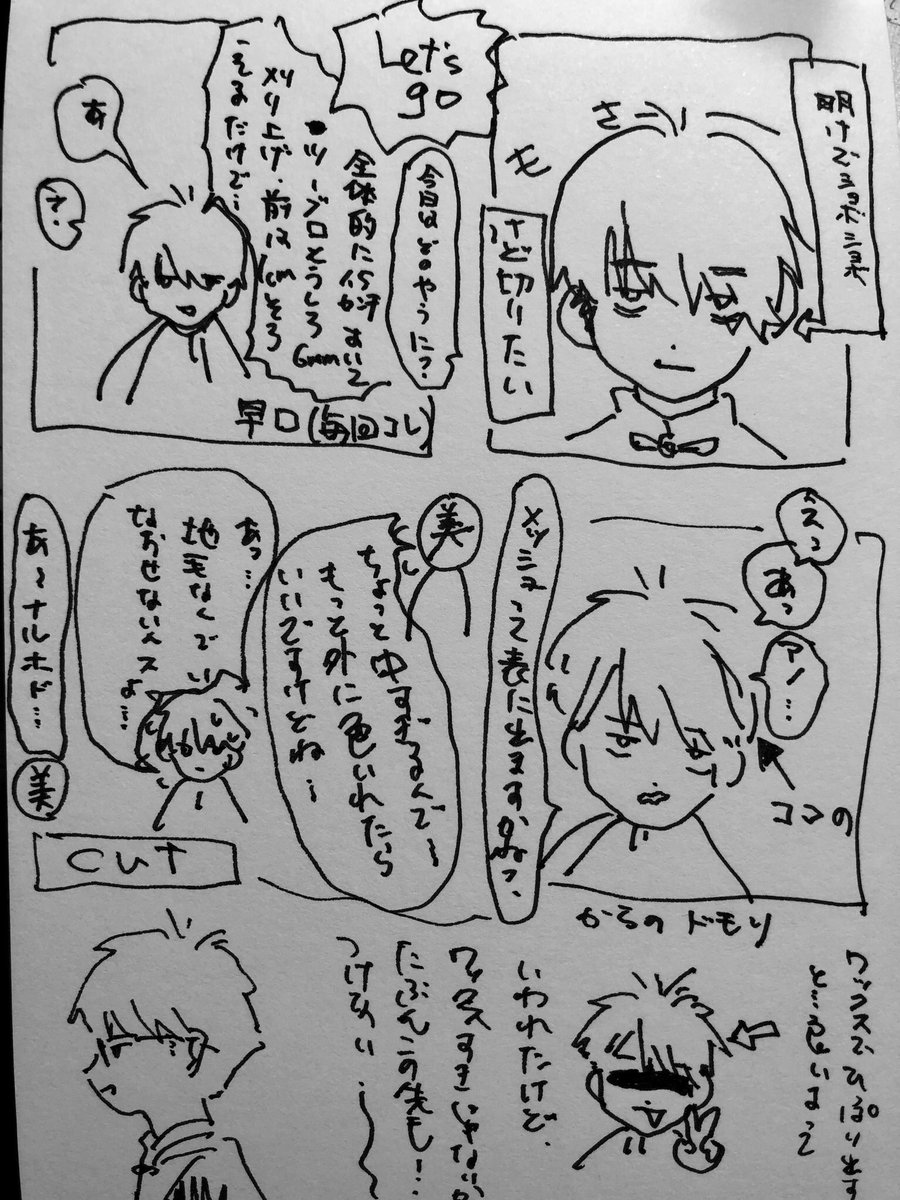 明けでショボショボ
さーっ
モ
けど切りたい
Let's
go
今日はどのように?
全体的に
ツーブロとうしろ6mm
刈り上げ、前は cmそろ
えるだけで…
あ
早口(毎回コレ)
ススっ
あっ
アノ…
メッシュって表に出ますかねっ、
コマの
からの ドモり
美
ちょっと中すぎるんで〜
もっと外に色いれたら
いいですけどね…
あっ…
地毛なんで
なおせないんスよ…
あ〜ナルホド…
美
CUT
ワックスでひっぱり出す
と…色いまって
いわれたけど、
ワックスすきじゃないから
たぶんこの先も…
つけない…